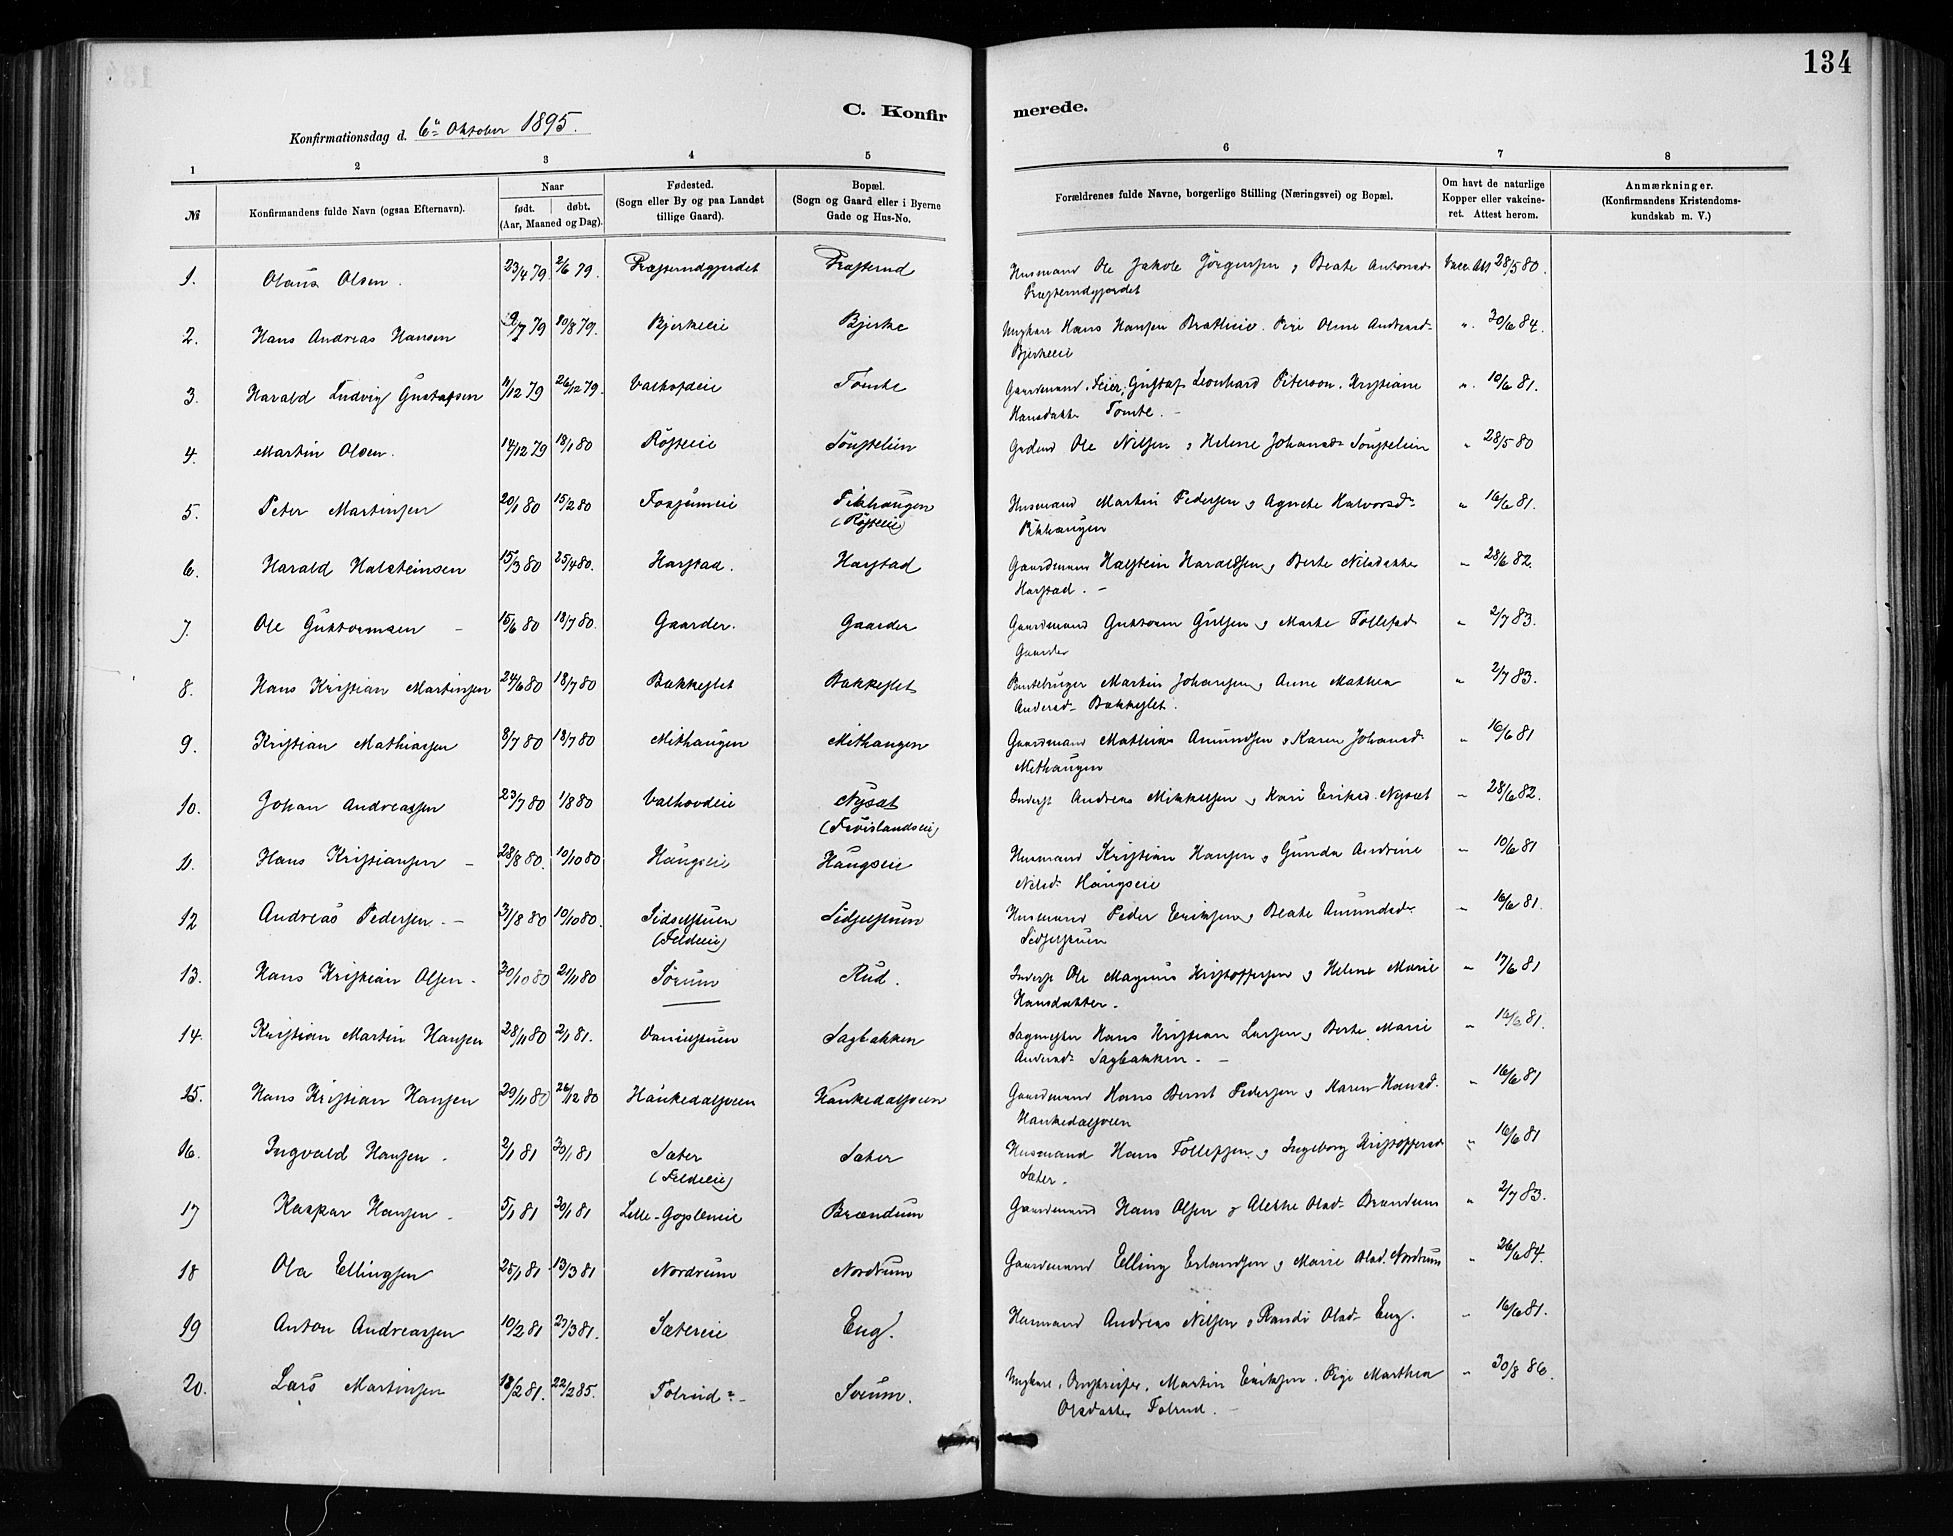 134
C. Konfirmerede.
Konfirmationsdag d. 6te Oktober 1895.
1 2 3 4 5 6 7 8
№
Konfirmandens fulde Navn (ogsaa Efternavn).
Naar
født. døbt.
(Aar, Maaned og Dag).
Fødested.
(Sogn eller By og paa Landet
tillige Gaard).
Bopæl.
(Sogn og Gaard eller i Byerne
Gade og Hus-No.
Forældrenes fulde Navne, borgerlige Stilling (Næringsvei) og Bopæl.
Om havt de naturlige
Kopper eller vakcine-
ret. Attest herom.
Anmærkninger.
(Konfirmandens Kristendoms-
kundskab m. V.)
1. Olaus Olsen. 23/4 79 2/6 79. Præsterudgjerdet Præsterud Husmand Ole Jakob Jörgensen, Beate Antonsd. Vacc. Att 28/5 80.
Præsterudgjerdet
2. Hans Andreas Hansen 9/7 79 10/8 79. Bjerkeeie Bjerke Ungkarl Hans Hansen Bratlieie. Pige Oline Andreasd.
" 30/6 84.
Bjerkeeie
3. Harald Ludvig Gustafsen 11/12 79 26/12 79. Valhofdeie Tomte Gaardmand, Feier, Gustaf Leonhard Peterson, Kristiane " 10/6 81.
Hansdatter Tomte. -
4. Martin Olsen. 14/12 79 18/1 80 Röisteie Sönstelien Grdmd Ole Nilsen, Helene Johansd. Sönstelien " 28/5 80
5. Peter Martinsen 20/1 80 15/2 80 Fossumeie Pikhaugen Husmand Martin Pedersen, Agnete Halvorsd. " 16/6 81.
(Röisteie) Pikhaugen
6. Harald Halsteinsen 15/3 80 25/4 80. Harstad. Harstad Gaardmand Halstein Haraldsen, Berte Nilsdatter " 28/6 82.
Harstad. -
7. Ole Guttormsen - 15/6 80 18/7 80. Gaarder. Gaarder Gaardmand Guttorm Gulsen, Marte Tollefsd. " 2/7 83.
Gaarder
8. Hans Kristian Martinsen 24/6 80 18/7 80 Bakkeslet Bakkeslet Martin Johansen, Anne Mathea " 2/7 83.
Andersd. Bakkeslet.
9. Kristian Mathiassen 8/7 80 18/7 80 Mithaugen Mithaugen Gaardmand Mathias Amundsen, Karen Johansd. " 16/6 81
Mithaugen
10. Johan Andreassen 23/7 80 1/8 80 Valhovdeie Nysæt Inderst Andreas Mikkelsen, Kari Eriksd. Nysæt " 28/6 82.
(Fröislandseie)
11. Hans Kristiansen - 28/8 80. 10/10 80 Haugseie Haugseie Husmand Kristian Hansen, Gunda Andrine " 10/6 81
Nilsd. Haugseie
12 Andreas Pedersen. - 31/8 80 10/10 80. Sidselstuen Sidselstuen Husmand Peder Eriksen, Beate Amundsd. " 16/6 81.
(Feldeie) Sidselstuen
13. Hans Kristian Olsen - 30/10 80 21/11 80 Sörum Rud. Inderst Ole Magnus Kristoffersen, Helene Marie " 17/6 81
Hansdatter.
14. Kristian Martin Hansen 28/11 80 2/1 81. Danielstuen Sagbakken Sagmester Hans Kristian Larsen, Berte Marie " 16/6 81.
Andersd. Sagbakken. -
15. Hans Kristian Hansen 29/11 80 26/12 80 Haukedalsveen Haukedalsveen Gaardmand Hans Bernt Pedersen, Karen Hansd. " 16/6 81
Haukedalsveen
16. Ingvald Hansen. 2/1 81 30/1 81 Sæter Sæter Husmand Hans Tollefsen, Ingeborg Kristoffersd. " 16/6 81
(Feldeie) Sæter.
17 Kaspar Hansen. 5/1 81 30/1 81 Lille-Goplerueie Brændum Gaardmand Hans Olsen, Alette Olsd. Brændum " 2/7 83.
18 Ola Ellingsen 25/1 81. 13/3 81 Nordrum Nordrum Gaardmand Elling Erlandsen, Marie Olsd. Nordrum " 26/6 84.
19 Anton Andreassen 10/2 81 27/3 81. Sætereie Eng. Husmand Andreas Nilsen, Randi Olsd. Eng. " 16/6 81.
20. Lars Martinsen 18/2 81. 22/2 85. Tolrud Sörum. Ungkarl, Martin Eriksen. Pige Marthea " 30/8 86.
Olsdatter Tolrud. -